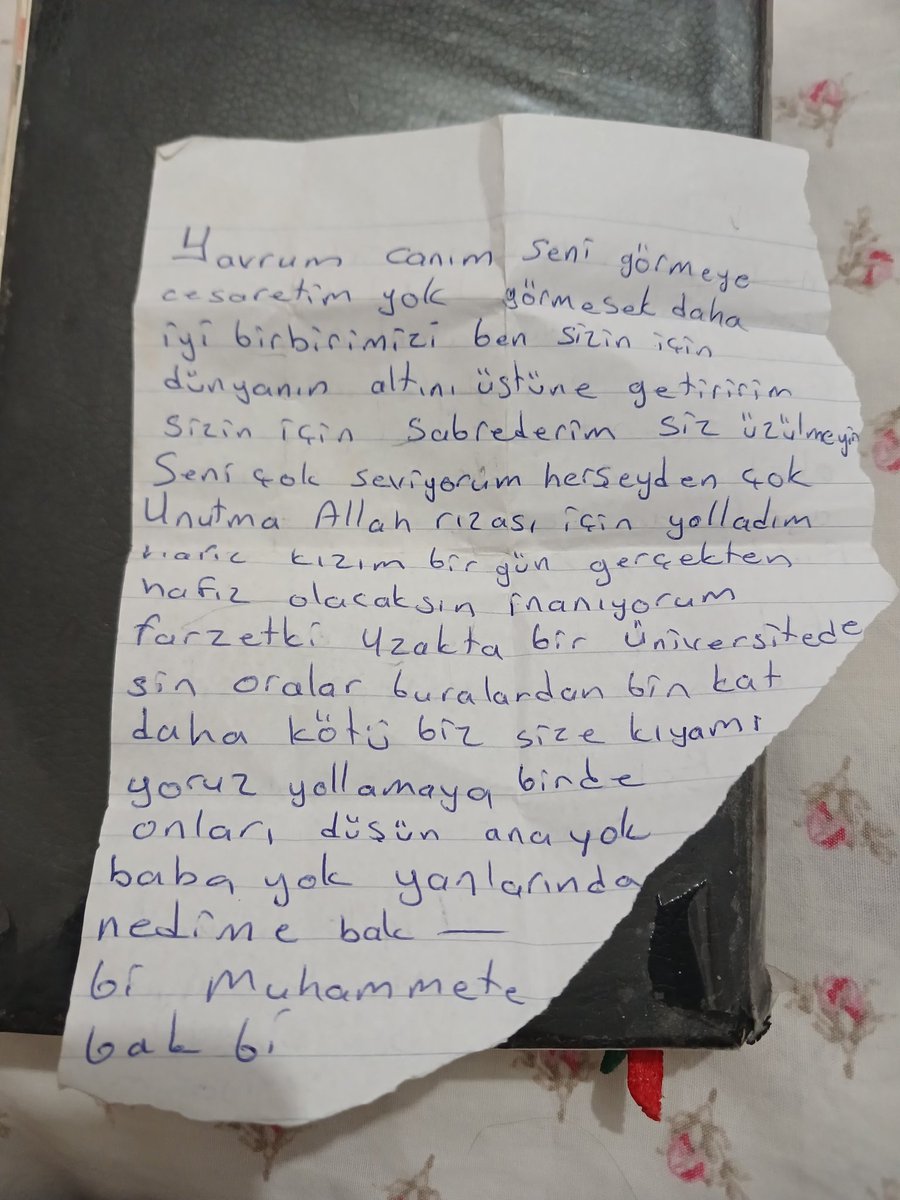 Yavrum canım seni görmeye
cesaretim yok görmesek daha
iyi birbirimizi ben sizin için
dünyanın altını üstüne getiririm
sizin için sabrederim siz üzülmeyin
Seni çok seviyorum herşeyden çok
Unutma Allah rızası için yolladım
kızım bir gün gerçekten
hafız olacaksın inanıyorum
farzetki uzakta bir üniversitede
sin oralar buralardan bin kat
daha kötü biz size kıyamı
yoruz yollamaya binde
onları düşün ana yok
baba yok yanlarında
nedime bak —
bi Muhammete
bak bi